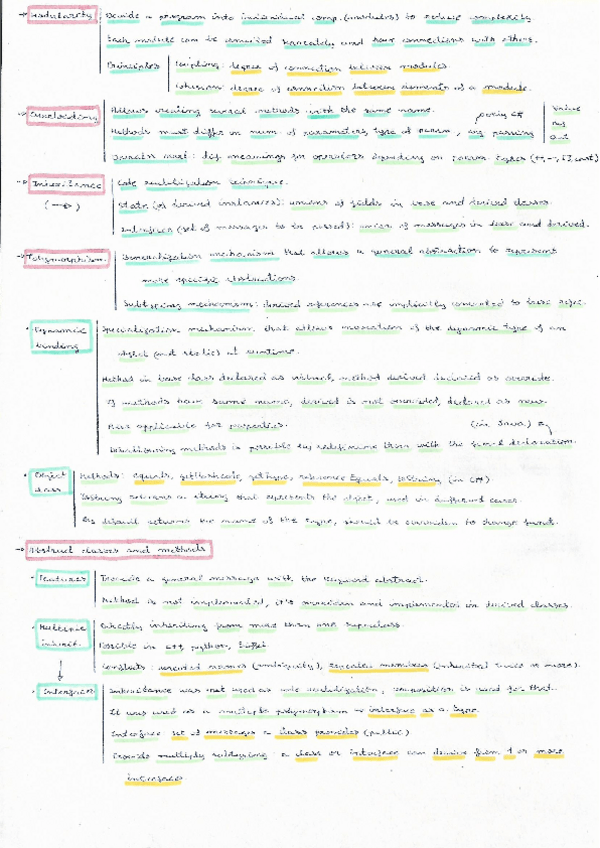 → Modularity | Divide a program into individual comp. (modules) to reduce complexity.
Each module can be compiled separately and have connections with others.
Principles | Coupling: degree of connection between modules.
Cohesion: degree of connection between elements of a module.
→ Overloading | Allows creating several methods with the same name.
Methods must differ in num. of parameters, type of param, arg passing
only C#
value
out
Operator overl.: def. meanings for operators depending on param. types
→ Inheritance | Code reutilization technique.
(→) State (of derived instances): union of fields in base and derived classes.
Interface (set of messages to be passed): union of messages in base and derived.
→ Polymorphism | Generalization mechanism that allows a general abstraction to represent
more specific abstractions.
Subtyping mechanism: derived references are implicitly converted to base refs.
· Dynamic binding | Specialization mechanism that allows invocation of the dynamic type of an
object (not static) at runtime.
Method in base class declared as virtual, method derived declared as override.
If methods have same name, derived is not override, declared as new.
Also applicable for properties. (in Java)
methods is possible by redefining them with the same declaration.
· Object class | Methods: equals, getHashCode, getType, referenceEquals, toString (in C#)
ToString returns a string that represents the object, used in different cases.
By default returns the name of the type, should be overriden to change
→ Abstract classes and methods
· Features | Provide a general message with the keyword abstract.
Method is not implemented, it's overriden and implemented in derived classes.
· Multiple inherit. | Directly inheriting from more than one superclass.
Possible in C++, python, Eiffel
Conflicts: repeated names (ambiguity), repeated members (inherited twice or more).
· Interfaces | Inheritance was not used as code reutilization, composition is used for that.
It was used as a multiple polymorphism → interface as a type.
Interface: set of messages a class provides (public)
Provide multiple subtyping: a class or interface can derive from 1 or more
interfaces.